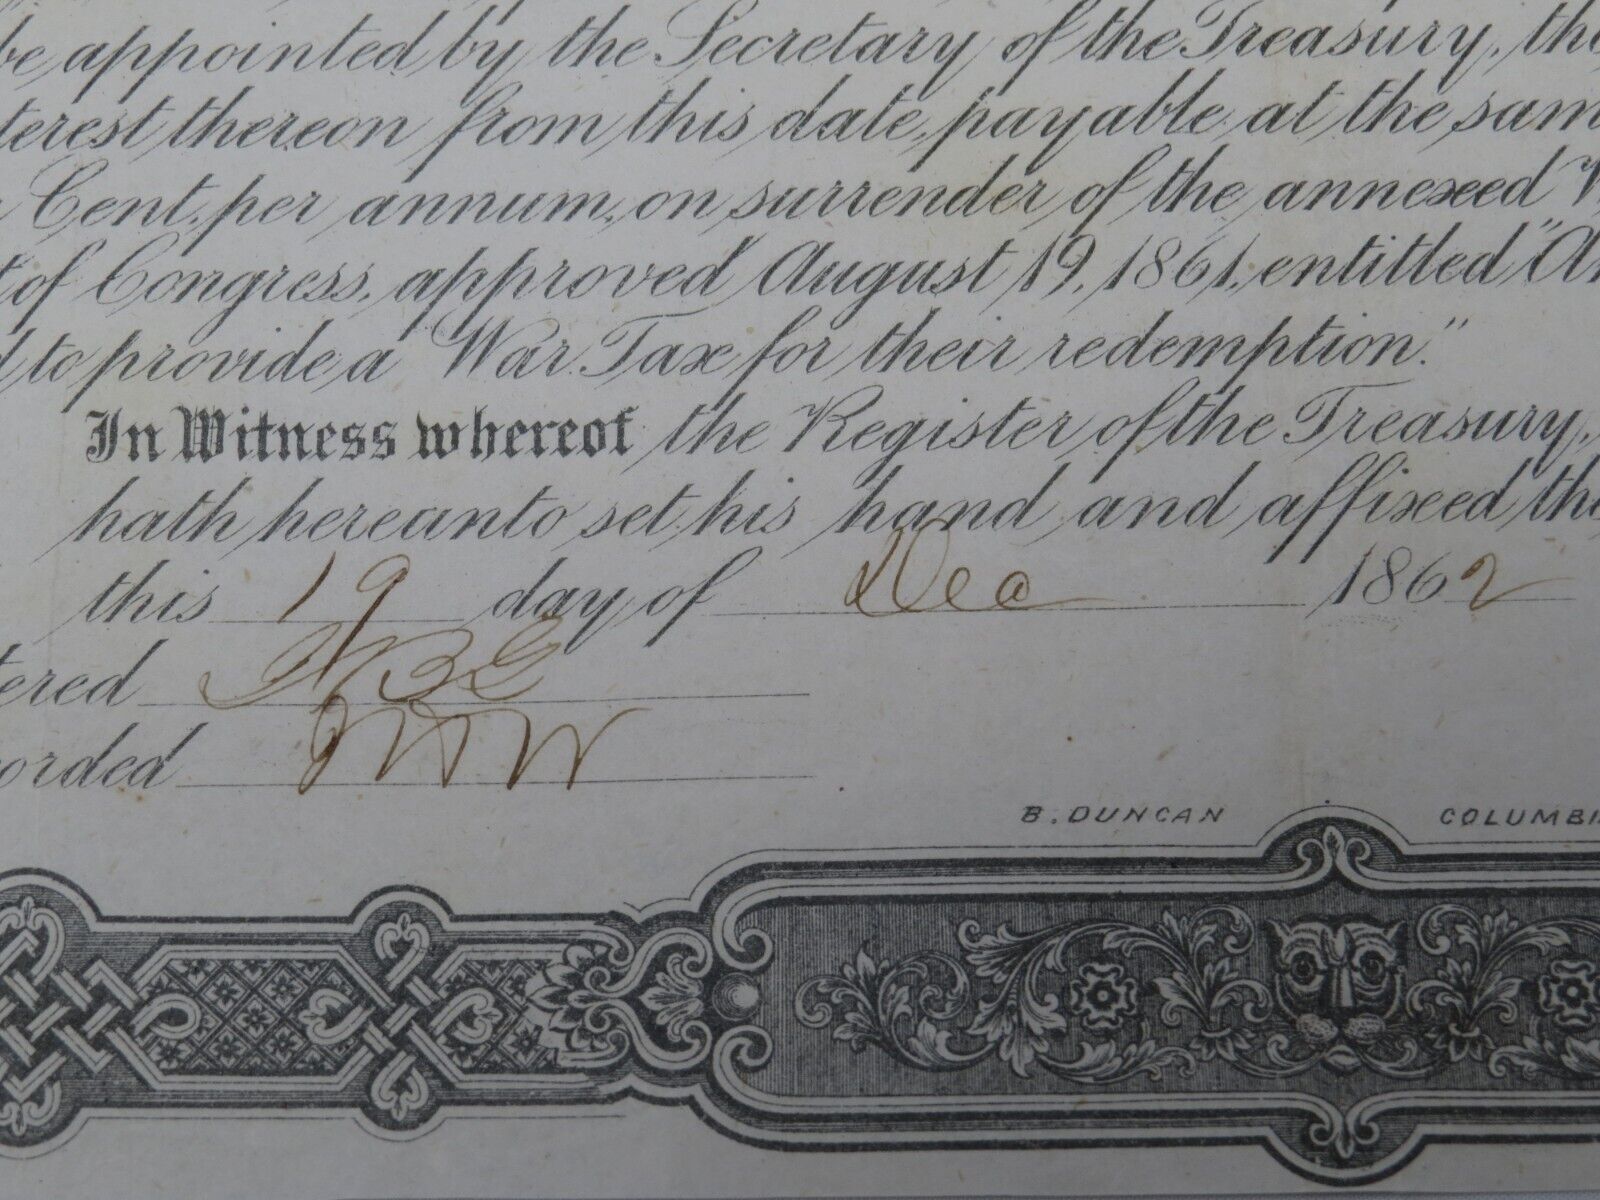 be appointed by the Secretary of the Treasury, the
terest thereon from this date, payable at the sam
Cent. per annum, on surrender of the annexed
of Congress, approved August 19, 1861, entitled "An
to provide a War Tax for their redemption."
In Witness whereof the Register of the Treasury,
hath hereunto set his hand and affixed the
this 19 day of Dec 1862
tered
orded
B. DUNCAN COLUMBI